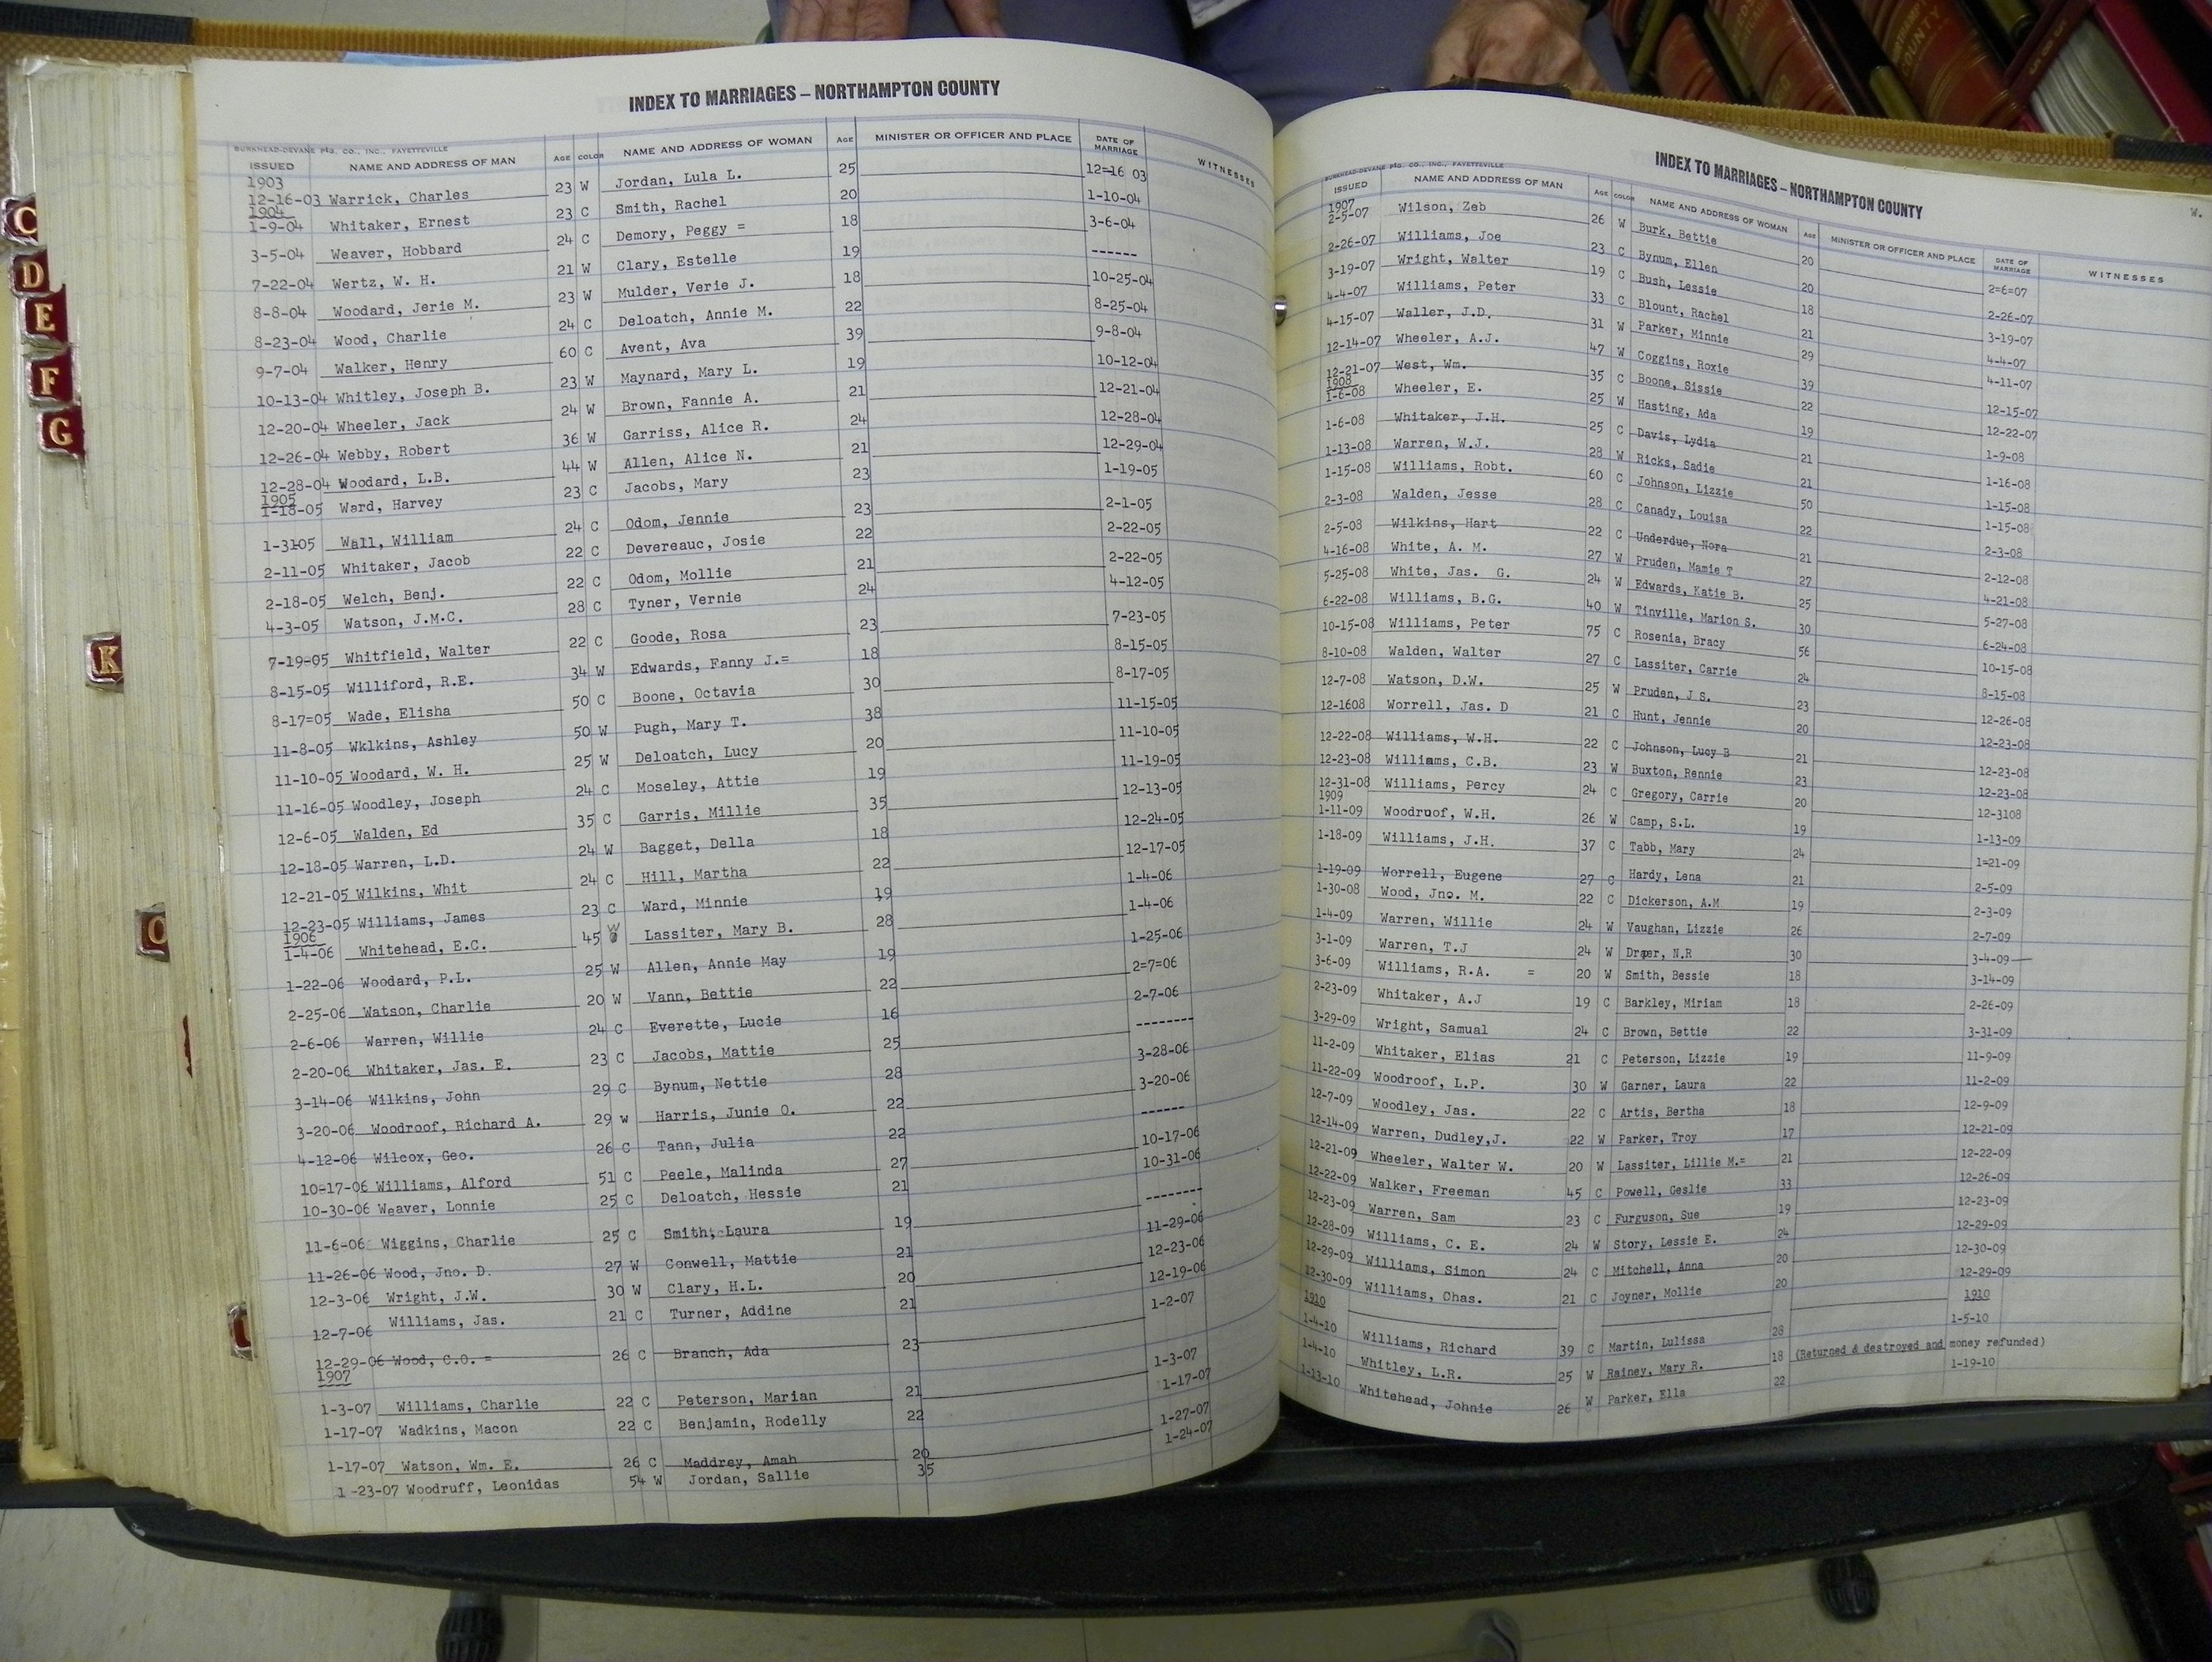 C
D
E
F
G
K
O
L
INDEX TO MARRIAGES – NORTHAMPTON COUNTY
BURKHEAD-DEVANE PTG. CO., INC., FAYETTEVILLE
ISSUED NAME AND ADDRESS OF MAN AGE COLOR NAME AND ADDRESS OF WOMAN AGE MINISTER OR OFFICER AND PLACE DATE OF MARRIAGE WITNESSES
1903
12-16-03 Warrick, Charles 23 W Jordan, Lula L. 25 12=16 03
1904
1-9-04 Whitaker, Ernest 23 C Smith, Rachel 20 1-10-04
3-5-04 Weaver, Hobbard 24 C Demory, Peggy = 18 3-6-04
7-22-04 Wertz, W. H. 21 W Clary, Estelle 19 ------
8-8-04 Woodard, Jerie M. 23 W Mulder, Verie J. 18 10-25-04
8-23-04 Wood, Charlie 24 C Deloatch, Annie M. 22 8-25-04
9-7-04 Walker, Henry 60 C Avent, Ava 39 9-8-04
10-13-04 Whitley, Joseph B. 23 W Maynard, Mary L. 19 10-12-04
12-20-04 Wheeler, Jack 24 W Brown, Fannie A. 21 12-21-04
12-26-04 Webby, Robert 36 W Garriss, Alice R. 24 12-28-04
12-28-04 Woodard, L.B. 44 W Allen, Alice N. 21 12-29-04
1905
1-18-05 Ward, Harvey 23 C Jacobs, Mary 23 1-19-05
1-3105 Wall, William 24 C Odom, Jennie 23 2-1-05
2-11-05 Whitaker, Jacob 22 C Devereauc, Josie 22 2-22-05
2-18-05 Welch, Benj. 22 C Odom, Mollie 21 2-22-05
4-3-05 Watson, J.M.C. 28 C Tyner, Vernie 24 4-12-05
7-19-05 Whitfield, Walter 22 C Goode, Rosa 23 7-23-05
8-15-05 Williford, R.E. 34 W Edwards, Fanny J.= 18 8-15-05
8-17=05 Wade, Elisha 50 C Boone, Octavia 30 8-17-05
11-8-05 Wklkins, Ashley 50 W Pugh, Mary T. 38 11-15-05
11-10-05 Woodard, W. H. 25 W Deloatch, Lucy 20 11-10-05
11-16-05 Woodley, Joseph 24 C Moseley, Attie 19 11-19-05
12-6-05 Walden, Ed 35 C Garris, Millie 35 12-13-05
12-18-05 Warren, L.D. 24 W Bagget, Della 18 12-24-05
12-21-05 Wilkins, Whit 24 C Hill, Martha 22 12-17-05
12-23-05 Williams, James 23 C Ward, Minnie 19 1-4-06
1906
1-4-06 Whitehead, E.C. 45 W Lassiter, Mary B. 28 1-4-06
1-22-06 Woodard, P.L. 25 W Allen, Annie May 19 1-25-06
2-25-06 Watson, Charlie 20 W Vann, Bettie 22 2=7=06
2-6-06 Warren, Willie 24 C Everette, Lucie 16 2-7-06
2-20-06 Whitaker, Jas. E. 23 C Jacobs, Mattie 25 --------
3-14-06 Wilkins, John 29 C Bynum, Nettie 28 3-28-06
3-20-06 Woodroof, Richard A. 29 w Harris, Junie O. 22 3-20-06
4-12-06 Wilcox, Geo. 26 C Tann, Julia 22 ------
10-17-06 Williams, Alford 51 C Peele, Malinda 27 10-17-06
10-30-06 Weaver, Lonnie 25 C Deloatch, Hessie 21 10-31-06
11-6-06 Wiggins, Charlie 25 C Smith, Laura 19 --------
11-26-06 Wood, Jno. D. 27 W Conwell, Mattie 21 11-29-06
12-3-06 Wright, J.W. 30 W Clary, H.L. 20 12-23-06
12-7-06 Williams, Jas. 21 C Turner, Addine 21 12-19-06
12-29-06 Wood, C.O. = 26 C Branch, Ada 23 1-2-07
1907
1-3-07 Williams, Charlie 22 C Peterson, Marian 21 1-3-07
1-17-07 Wadkins, Macon 22 C Benjamin, Rodelly 22 1-17-07
1-17-07 Watson, Wm. E. 26 C Maddrey, Amah 20 1-27-07
1-23-07 Woodruff, Leonidas 54 W Jordan, Sallie 35 1-24-07
INDEX TO MARRIAGES – NORTHAMPTON COUNTY
W.
BURKHEAD-DEVANE PTG. CO., INC., FAYETTEVILLE
ISSUED NAME AND ADDRESS OF MAN AGE COLOR NAME AND ADDRESS OF WOMAN AGE MINISTER OR OFFICER AND PLACE DATE OF MARRIAGE WITNESSES
1907
2-5-07 Wilson, Zeb 26 W Burk, Bettie 20 2=6=07
2-26-07 Williams, Joe 23 C Bynum, Ellen 20 2-26-07
3-19-07 Wright, Walter 19 C Bush, Lessie 18 3-19-07
4-4-07 Williams, Peter 33 C Blount, Rachel 21 4-4-07
4-15-07 Waller, J.D. 31 W Parker, Minnie 29 4-11-07
12-14-07 Wheeler, A.J. 47 W Coggins, Roxie 39 12-15-07
12-21-07 West, Wm. 35 C Boone, Sissie 22 12-22-07
1908
1-6-08 Wheeler, E. 25 W Hasting, Ada 19 1-9-08
1-6-08 Whitaker, J.H. 25 C Davis, Lydia 21 1-16-08
1-13-08 Warren, W.J. 28 W Ricks, Sadie 21 1-15-08
1-15-08 Williams, Robt. 60 C Johnson, Lizzie 50 1-15-08
2-3-08 Walden, Jesse 28 C Canady, Louisa 22 2-3-08
2-5-08 Wilkins, Hart 22 C Underdue, Nora 21 2-12-08
4-16-08 White, A. M. 27 W Pruden, Mamie T 27 4-21-08
5-25-08 White, Jas. G. 24 W Edwards, Katie B. 25 5-27-08
6-22-08 Williams, B.G. 40 W Tinville, Marion S. 30 6-24-08
10-15-08 Williams, Peter 75 C Rosenia, Bracy 56 10-15-08
8-10-08 Walden, Walter 27 C Lassiter, Carrie 24 8-15-08
12-7-08 Watson, D.W. 25 W Pruden, J S. 23 12-26-08
12-1608 Worrell, Jas. D 21 C Hunt, Jennie 20 12-23-08
12-22-08 Williams, W.H. 22 C Johnson, Lucy B 21 12-23-08
12-23-08 Williams, C.B. 23 W Buxton, Rennie 23 12-23-08
12-31-08 Williams, Percy 24 C Gregory, Carrie 20 12-3108
1909
1-11-09 Woodroof, W.H. 26 W Camp, S.L. 19 1-13-09
1-18-09 Williams, J.H. 37 C Tabb, Mary 24 1=21-09
1-19-09 Worrell, Eugene 27 C Hardy, Lena 21 2-5-09
1-30-08 Wood, Jno. M. 22 C Dickerson, A.M 19 2-3-09
1-4-09 Warren, Willie 24 W Vaughan, Lizzie 26 2-7-09
3-1-09 Warren, T.J 24 W Draer, N.R 30 3-4-09
3-6-09 Williams, R.A. = 20 W Smith, Bessie 18 3-14-09
2-23-09 Whitaker, A.J 19 C Barkley, Miriam 18 2-26-09
3-29-09 Wright, Samual 24 C Brown, Bettie 22 3-31-09
11-2-09 Whitaker, Elias 21 C Peterson, Lizzie 19 11-9-09
11-22-09 Woodroof, L.P. 30 W Garner, Laura 22 11-2-09
12-7-09 Woodley, Jas. 22 C Artis, Bertha 18 12-9-09
12-14-09 Warren, Dudley,J. 22 W Parker, Troy 17 12-21-09
12-21-09 Wheeler, Walter W. 20 W Lassiter, Lillie M.= 21 12-22-09
12-22-09 Walker, Freeman 45 C Powell, Geslie 33 12-26-09
12-23-09 Warren, Sam 23 C Furguson, Sue 19 12-23-09
12-28-09 Williams, C. E. 24 W Story, Lessie E. 24 12-29-09
12-29-09 Williams, Simon 24 C Mitchell, Anna 20 12-30-09
12-30-09 Williams, Chas. 21 C Joyner, Mollie 20 12-29-09
1910 1910
1-4-10 Williams, Richard 39 C Martin, Lulissa 28 1-5-10
1-4-10 Whitley, L.R. 25 W Rainey, Mary R. 18 (Returned & destroyed and money refunded)
1-13-10 Whitehead, Johnie 26 W Parker, Ella 22 1-19-10
COUNTY